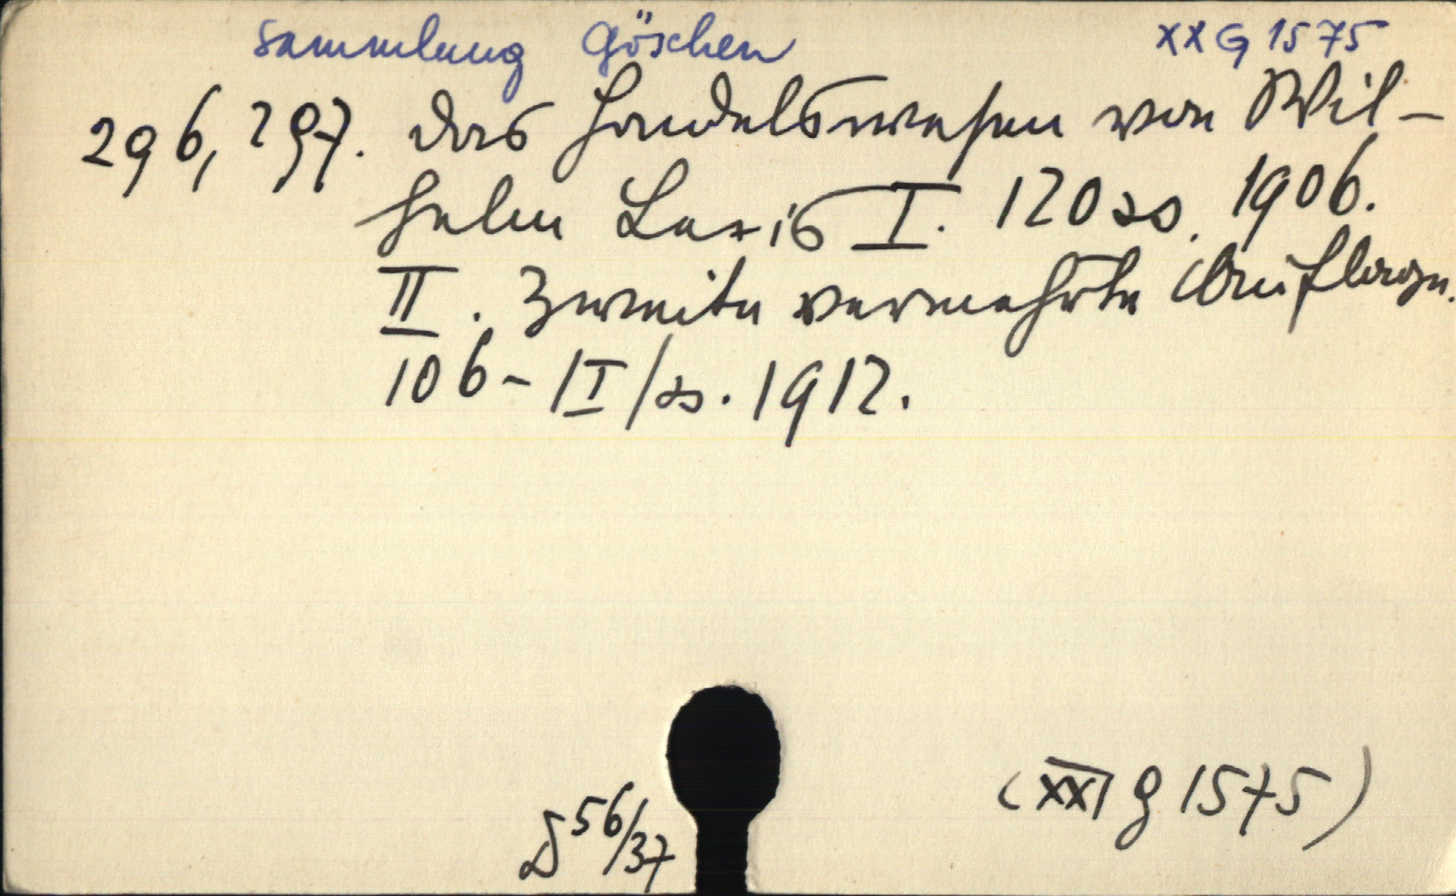 Sammlung Göschen XX G 1575
296, 297. Das Handelswesen von Wil-
helm Lexis I. 120 ss. 1906.
II. Zweite vermehrte Auflage
106 - |I| ss. 1912.
(XXI g 1575)
D 56/37